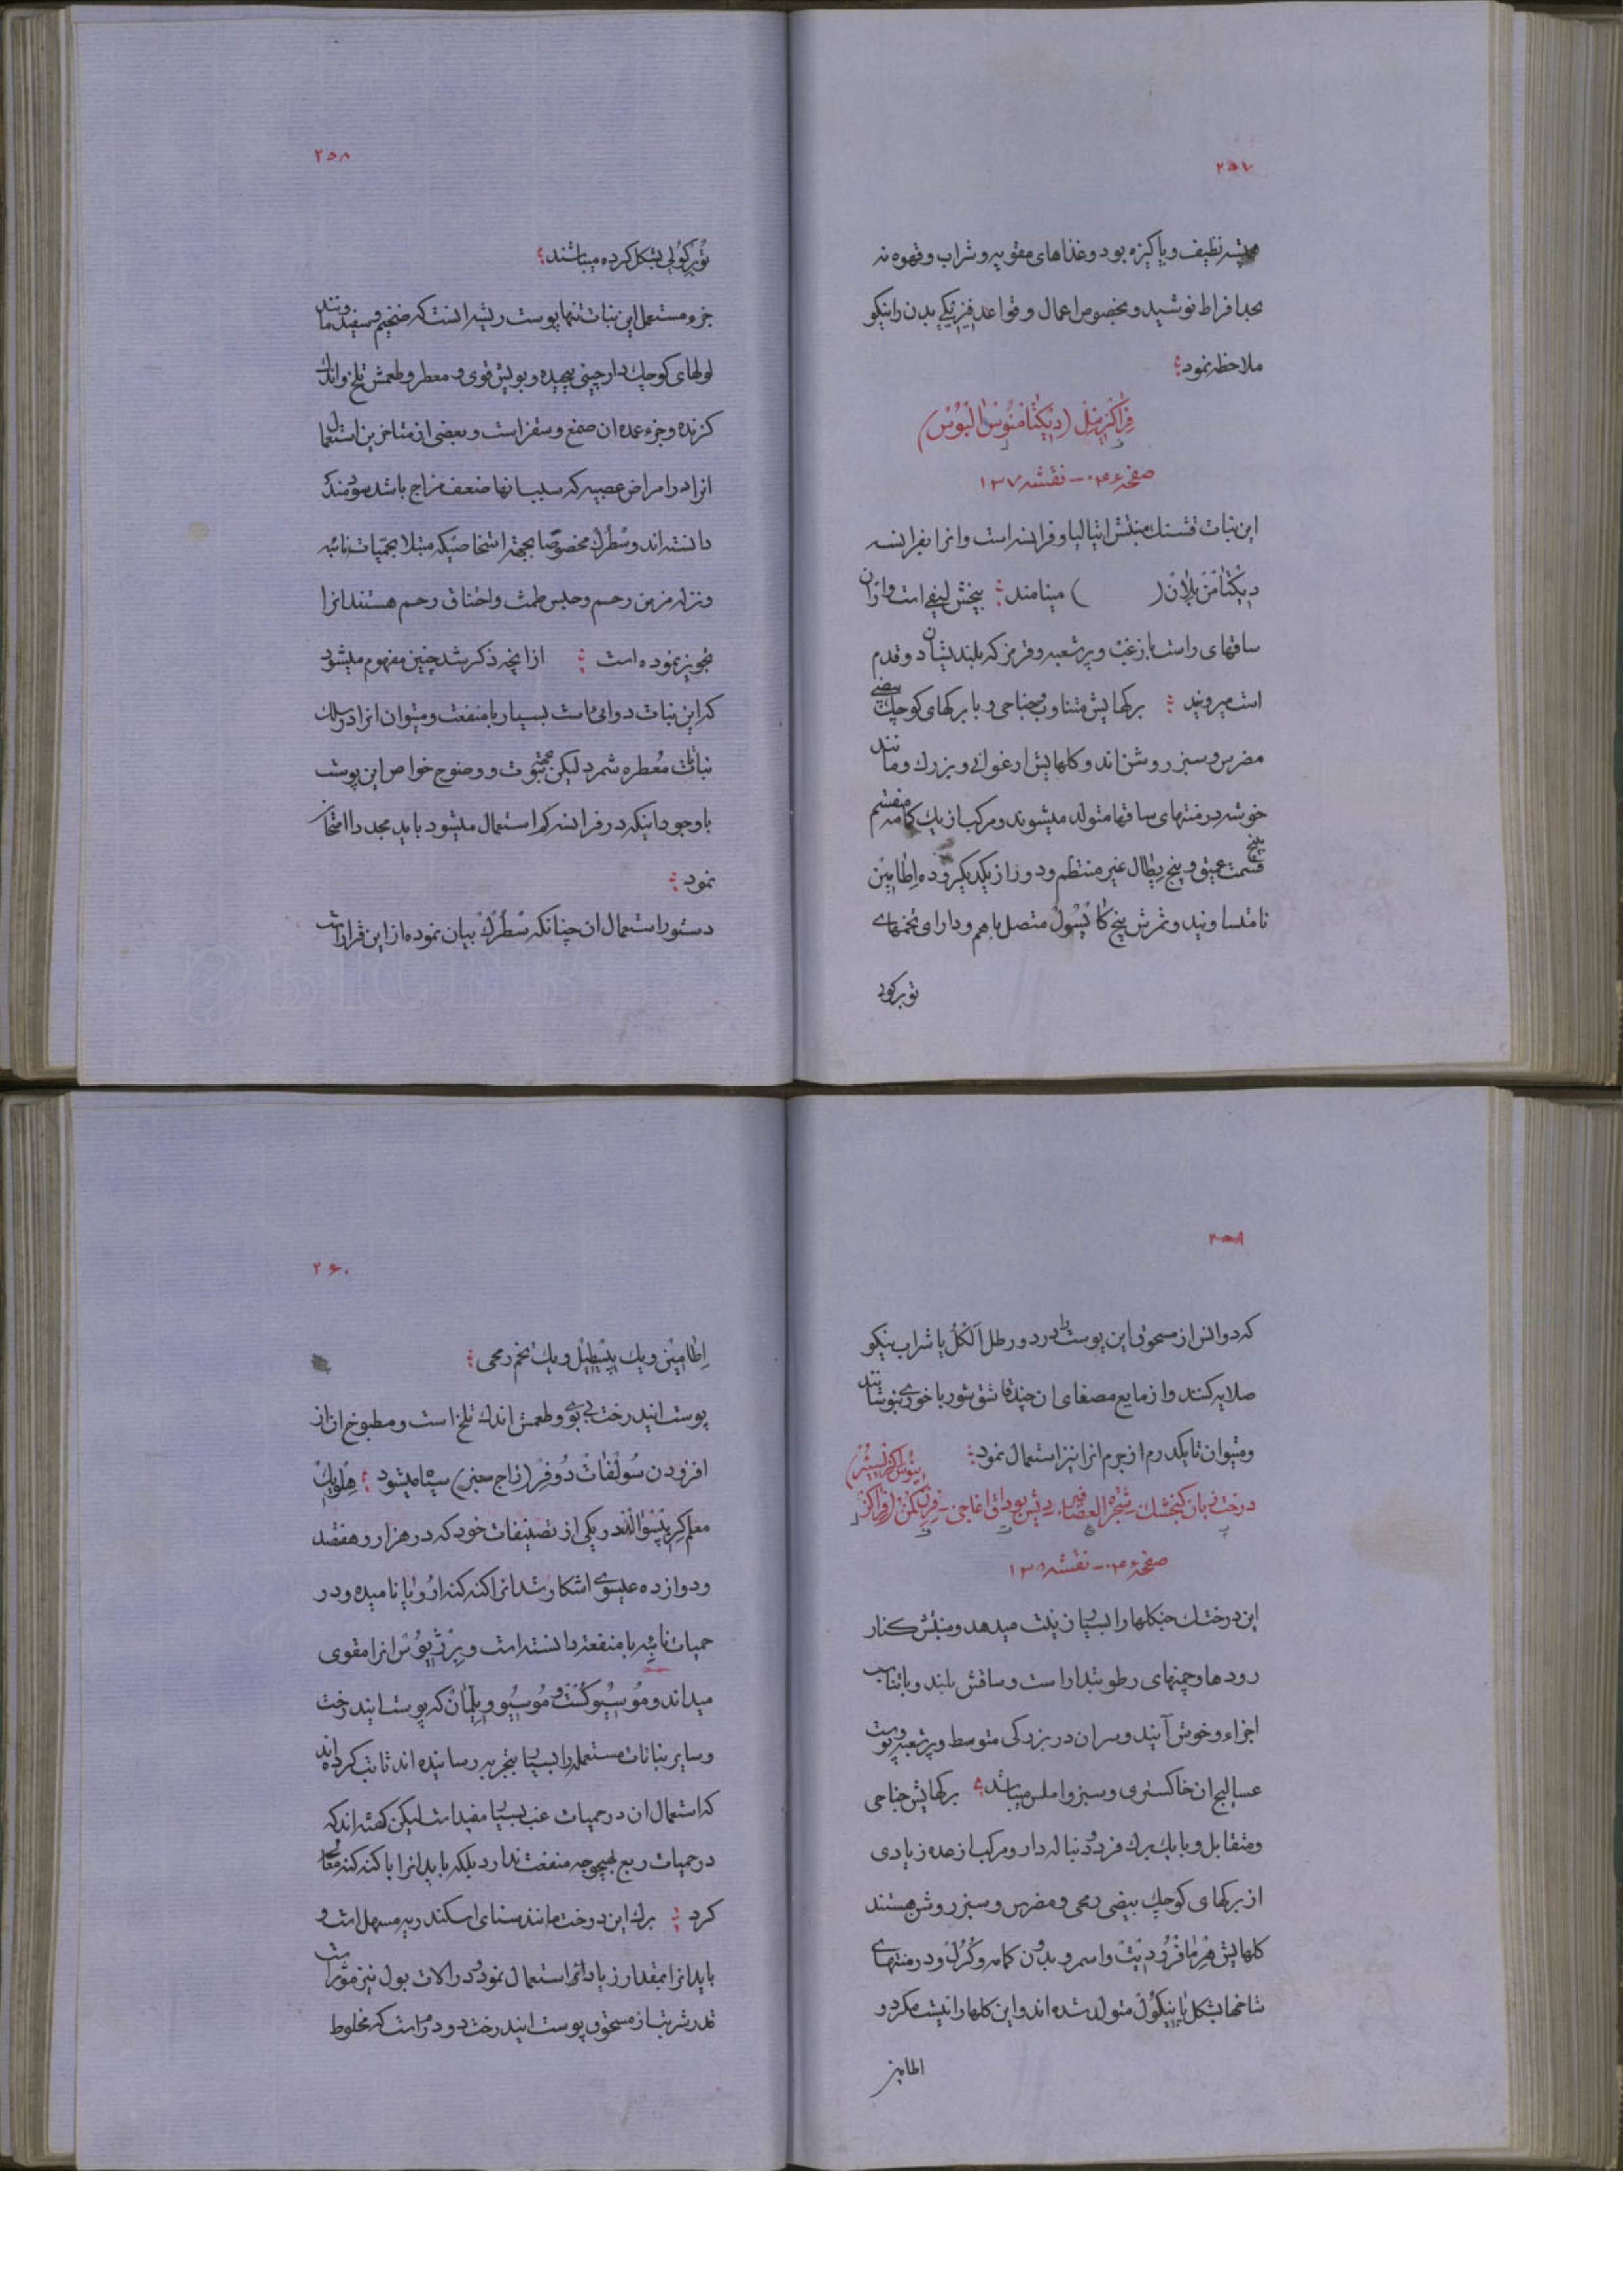 ۲۵۷
همیشه نظیف و پاکیزه بود و غذاهای مقویه و شراب و قهوه نه
بحد افراط نوشید و بخصوص اعمال و قواعد فیزیکی بدن را نیکو
ملاحظه نمود
فراکزینل (دیکتامنوس البوس)
صفحه ۰۳۶ – نقشه ۱۳۷
این نبات قشنک منبتش ایتالیا و فرانسه است و انرا بفرانسه
دیکتامن بلان ( ) مینامند بیخش لیفی است و از ان
ساقهای راست با زغب و پر شعبه و قرمز که بلندیشان دو قدم
است میروید برکهایش متناوب و جناحی و با برکهای کوچک بیضی
مضرس و سبز روشن اند و کلهایش ارغوانی و بزرک و مانند
خوشه در منتهای ساقها متولد میشوند و مرکب از یک کامه منقسم
پنج قسمت عمیق و پنج پطال غیر منتظم و دور از یکدیکر و ده اطامین
نامتساویند و ثمرش پنج کاپسول متصل باهم و دارای تخمهای
توبرکولی
۲۵۸
توبرکولی بشکل کرده میباشند
جزء مستعمل این نبات تنها پوست ریشه انست که ضخیم و سفید و مانند
لولهای کوچک دارچینی پیچیده و بویش قوی و معطر و طعمش تلخ و اندک
کزنده و جزء عمده ان صمغ و سقز است و بعضی از متاخرین استعمال
انرا در امراض عصبیه که سبب انها ضعف مزاج باشد سودمند
دانسته اند و سطرک مخصوصا بجهة اشخاصیکه مبتلا بحمیات نائبه
و نزله مزمن رحم و حبس طمث و اختناق رحم هستند انرا
تجویز نموده است از انچه ذکر شد چنین مفهوم میشود
که این نبات دوائی است بسیار با منفعت و میتوان انرا در سلک
نباتات معطره شمرد لیکن بجهة ثبوت و وضوح خواص این پوست
با وجود اینکه در فرانسه کم استعمال میشود باید مجددا امتحان
نمود
دستور استعمال ان چنانکه سطرک بیان نموده از این قرار است
که دو انس از مسحوق این پوست را در دو رطل الکل یا شراب نیکو
صلایه کنند و از مایع مصفای ان چند قاشق شوربا خوری بنوشانند
و میتوان تا یکدرم از جرم انرا نیز استعمال نمود
درخت زبان کنجشک – شجرة العصافیر – دیش بوداق اغاجی – فرن کمن (فراکز
ینوس اکزلسیر)
صفحه ۰۳۶ – نقشه ۱۳۸
این درختک جنکلها را بسیار زینت میدهد و منبتش کنار
رودها و چمنهای رطوبتدار است و ساقش بلند و با تناسب
اجزاء و خوش آیند و سر ان در بزرکی متوسط و پر شعبه و پوست
عسالیج ان خاکستری و سبز و املس میباشد برکهایش جناحی
و متقابل و با یک برک فرد و دنباله دار و مرکب از عده زیادی
از برکهای کوچک بیضی رمحی و مضرس و سبز روشن هستند
کلهایش هرمافرودیت و اسمر و بدون کامه و کرل و در منتهای
شاخها بشکل پانیکول متولد شده اند و این کلها را نیست مکر دو
اطامین
۲۶۰
اطامین و یک پیسطیل و یک تخم رمحی
پوست ایندرخت بی بوی و طعمش اندک تلخ است و مطبوخ ان از
افزودن سولفات دوفر (زاج سبز) سیاه میشود هلویک
معلم کریپسوالد در یکی از تصنیفات خود که در هزار و هفتصد
و دوازده عیسوی اشکار شد انرا کنه کنه اروپا نامیده و در
حمیات نائبه با منفعت دانسته است و برژیوس انرا مقوی
میداند و موسیو کست و موسیو ویلمان که پوست ایندرخت
و سایر نباتات مستعمله را بسیار بتجربه رسانیده اند ثابت کرده اند
که استعمال ان در حمیات غب بسیار مفید است لیکن کفته اند که
در حمیات ربع بهیچوجه منفعت ندارد بلکه باید انرا با کنه کنه معالجه
کرد برک این درخت مانند سنای اسکندریه مسهل است و
باید انرا بمقدار زیادتر استعمال نمود و در الات بول نیز موثر است
قدر شربت از مسحوق پوست ایندرخت دو درم است که مخلوط